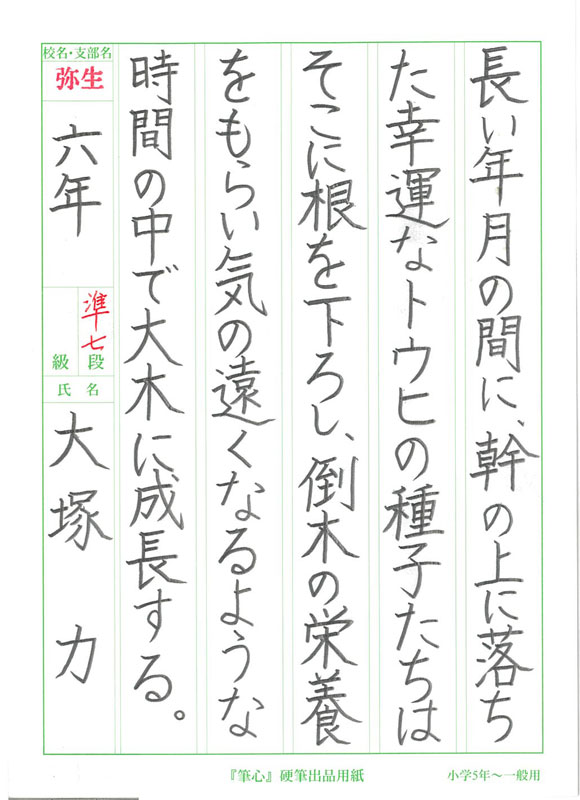 長い年月の間に、幹の上に落ち
た幸運なトウヒの種子たちは
そこに根を下ろし、倒木の栄養
をもらい気の遠くなるような
時間の中で大木に成長する。
校名・支部名
弥生
六年
準七
段
級
氏名
大塚 力
『筆心』硬筆出品用紙
小学5年〜一般用